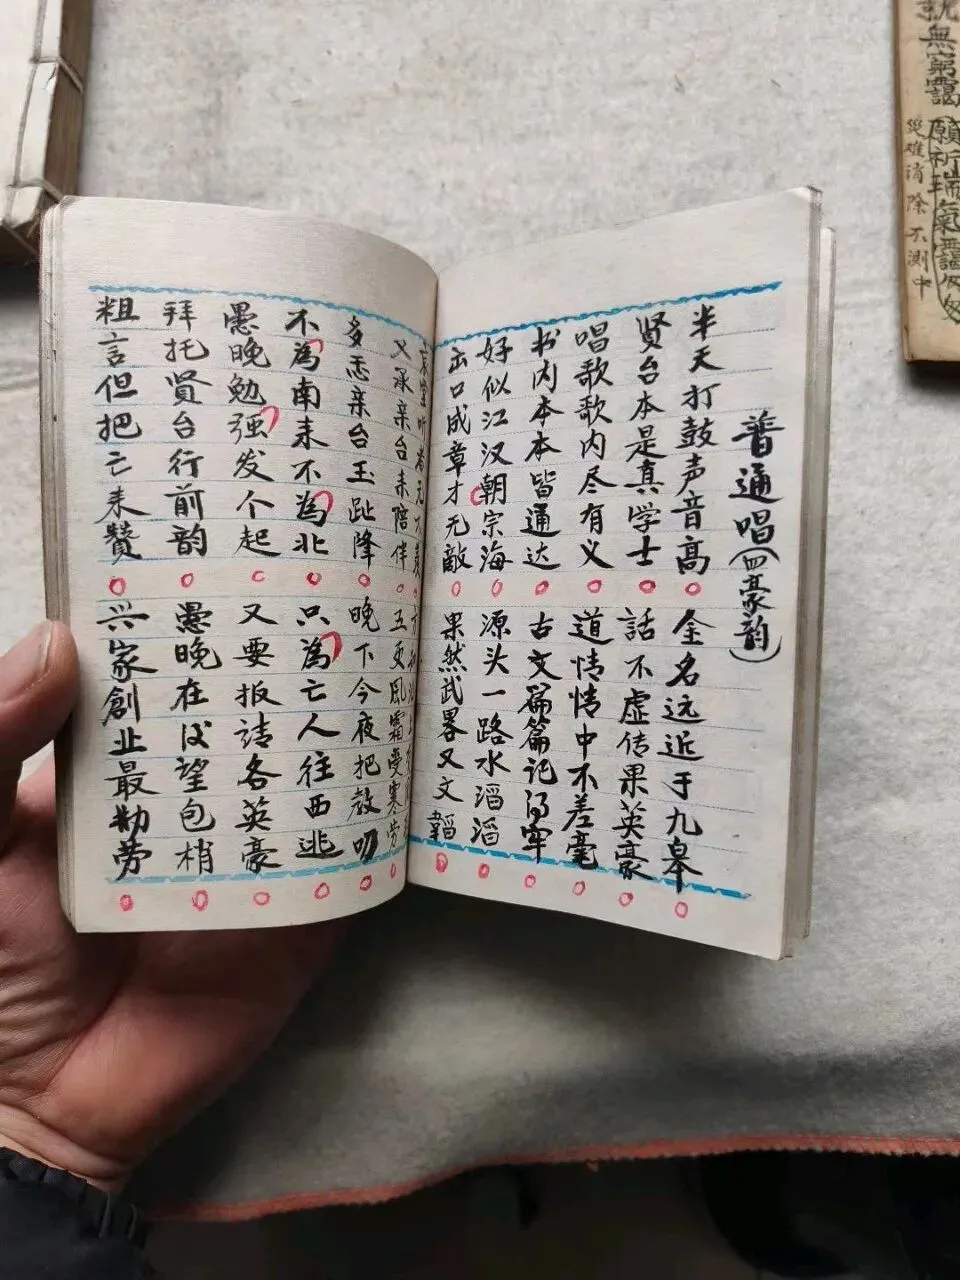 普通唱(四豪韵)
半天打鼓声音高 全名远近于九皋
贤台本是真学士 話不虚传果英豪
唱歌歌内尽有义 道情情中不差毫
书内本本皆通达 古文篇篇记得牢
好似江汉朝宗海 源头一路水滔滔
出口成章才无敵 果然武畧又文韜
又承亲台来陪伴 五更風霜受寒劳
多恧亲台玉趾降 晚下今夜把教叨
不為南来不為北 只為亡人往西逃
愚晚勉强发个起 又要扳請各英豪
拜托贤台行前韵 愚晚在後望包梢
粗言但把亡来赞 兴家創业最勤劳
就無窮靄
願祈瑞氣靄
災难消除不測中